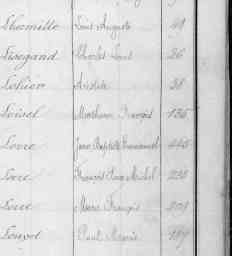 Lhermitte Louis Auguste
Lisegand Charles Louis 26
Lohier Aristide 38
Loisel Mathurin François 135
Lorre Jean Baptiste Emmanuel 445
Lorre François Jean Michel 238
Lorre Marie François 209
Louvet Paul Marie